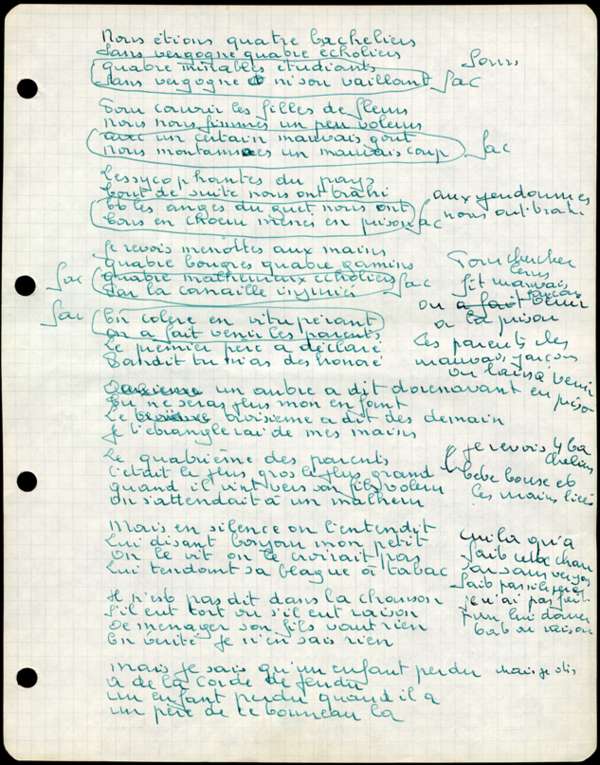 Nous étions quatre bacheliers
Sans vergogne quatre écholiers
quatre minables étudiants
Sans vergogne et ni son vaillant
Sans
Sac
Pour couvrir les filles de fleurs
nous nous fimmes un peu voleurs
avec un certain mauvais goût
nous montammes un mauvais coup
Sac
Les sycophantes du pays
tout de suite nous ont trahi
et les anges du guet nous ont
tous en choeur menés en prison
Sac
aux gendarmes
nous ont trahi
Je revois menottes aux mains
quatre bougres quatre gamins
quatre malheureux écholiers
par la canaille
Sac
Sac
En colère en vitupérant
on a fait venir les parents
Le premier père a déclaré
Bandit tu m'as déshonoré
Sac
Pour chercher
leurs
on a fait venir
à la prison
Les parents des
mauvais garçons
on laissa venir
un autre a dit dorénavant
Tu ne seras plus mon enfant
Le troisième a dit dès demain
Je t'étranglerai de mes mains
Le quatrième des parents
C'était le plus gros le plus grand
quand il vint vers son fils voleur
on s'attendait à un malheur
je revois 4 ba
cheliers
tête basse et
les mains liées
Mais en silence on l'entendit
Lui disant bonjour mon petit
on le vit on le croirait pas
Lui tendant sa blague à tabac
Il n'est pas dit dans la chanson
S'il eut tort ou s'il eut raison
De ménager son fils vaurien
En vérité je n'en sais rien
celui qu'a
fait cette chan
son sans vergog
j'n'ai pas fait
p'un lui donner
tort ou raison
mais je sais qu'un enfant perdu
a de la corde de pendu
un enfant perdu quand il a
un père de ce tonneau là
mais je dis